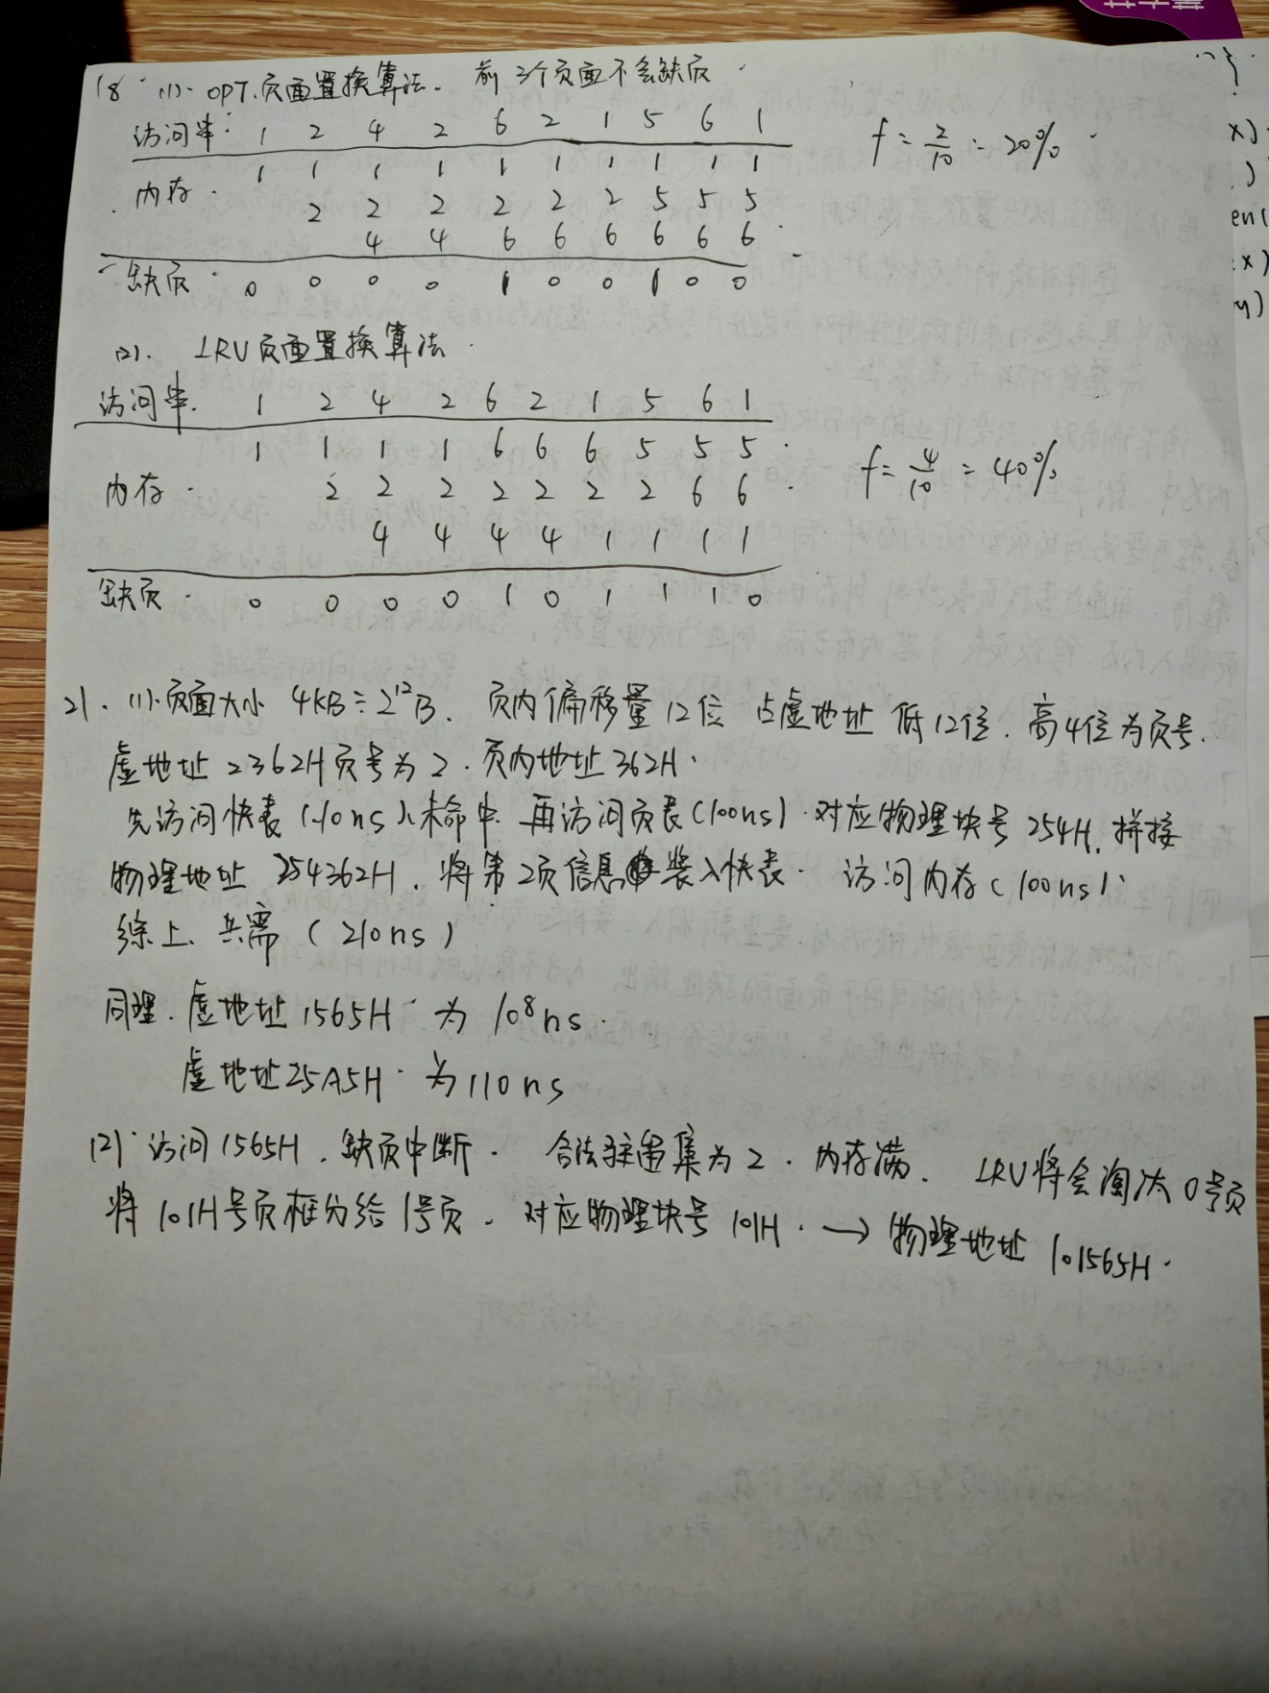 18 (1). OPT.页面置换算法. 前3个页面不会缺页
访问串: 1 2 4 2 6 2 1 5 6 1 f = 2/10 = 20%
内存. 1 1 1 1 1 1 1 1 1 1
2 2 2 2 2 2 5 5 5
4 4 6 6 6 6 6 6
缺页 0 0 0 0 1 0 0 1 0 0
(2). LRU页面置换算法.
访问串. 1 2 4 2 6 2 1 5 6 1
1 1 1 1 6 6 6 5 5 5
内存. 2 2 2 2 2 2 2 6 6 f = 4/10 = 40%
4 4 4 4 1 1 1 1
缺页. 0 0 0 0 1 0 1 1 1 0
21. (1).页面大小 4KB = 2^12B. 页内偏移量12位 占虚地址 低12位. 高4位为页号.
虚地址 2362H页号为2. 页内地址362H.
先访问快表(10ns)、未命中. 再访问页表(100ns).对应物理块号254H, 拼接
物理地址 254362H. 将第2页信息装入快表. 访问内存(100ns).
综上、共需(210ns)
同理. 虚地址1565H 为 10^8ns.
虚地址25A5H. 为110ns
(2) 访问1565H. 缺页中断. 合法驻留集为2. 内存满. LRU将会淘汰0号页
将101H号页框分给1号页. 对应物理块号101H. → 物理地址 101565H.
x)
)
en(
x)
y)